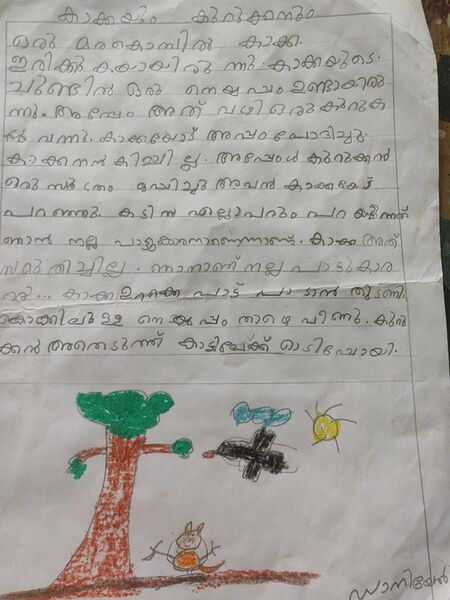 കാക്കയും കുറുക്കനും
ഒരു മരകൊമ്പിൽ കാക്ക
ഇരിക്കുകയായിരുന്നു. കാക്കയുടെ
ചുണ്ടിൻ ഒരു നെയ്യപ്പം ഉണ്ടായിരു
ന്നു. അപ്പോ അത് വഴി ഒരു കുറുക്ക
ൻ വന്നു. കാക്കയോട് അപ്പം ചോദിച്ചു.
കാക്ക നൽകിയില്ല. അപ്പോൾ കുറുക്കൻ
ഒരു സൂത്രം അവൻ കാക്കയോട്
പറഞ്ഞു. കടിൽ എല്ലാവരും പറയുന്നത്
ഞാൻ നല്ല പാട്ടുകാരനാണെന്നാണ്. കാക്ക അത്
സമ്മതിച്ചില്ല. ഞാനാണ് നല്ല പാട്ടുകാര
ൻ... കാക്ക ഉറക്കെ പാട്ട് പാടാൻ തുടങ്ങി.
കൊക്കിലുള്ള നെയ്യപ്പം താഴെ വീണു. കുറു
ക്കൻ അതെടുത്ത് കാട്ടിലേക്ക് ഓടിപ്പോയി.
ഡാനിയേൽ